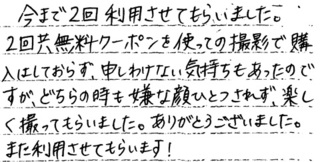 今まで2回利用させてもらいました。
2回共無料クーポンを使っての撮影で購
入はしておらず、申しわけない気持ちもあったので
すが、どちらの時も嫌な顔ひとつされず、楽し
く撮ってもらいました。ありがとうございました。
また利用させてもらいます!